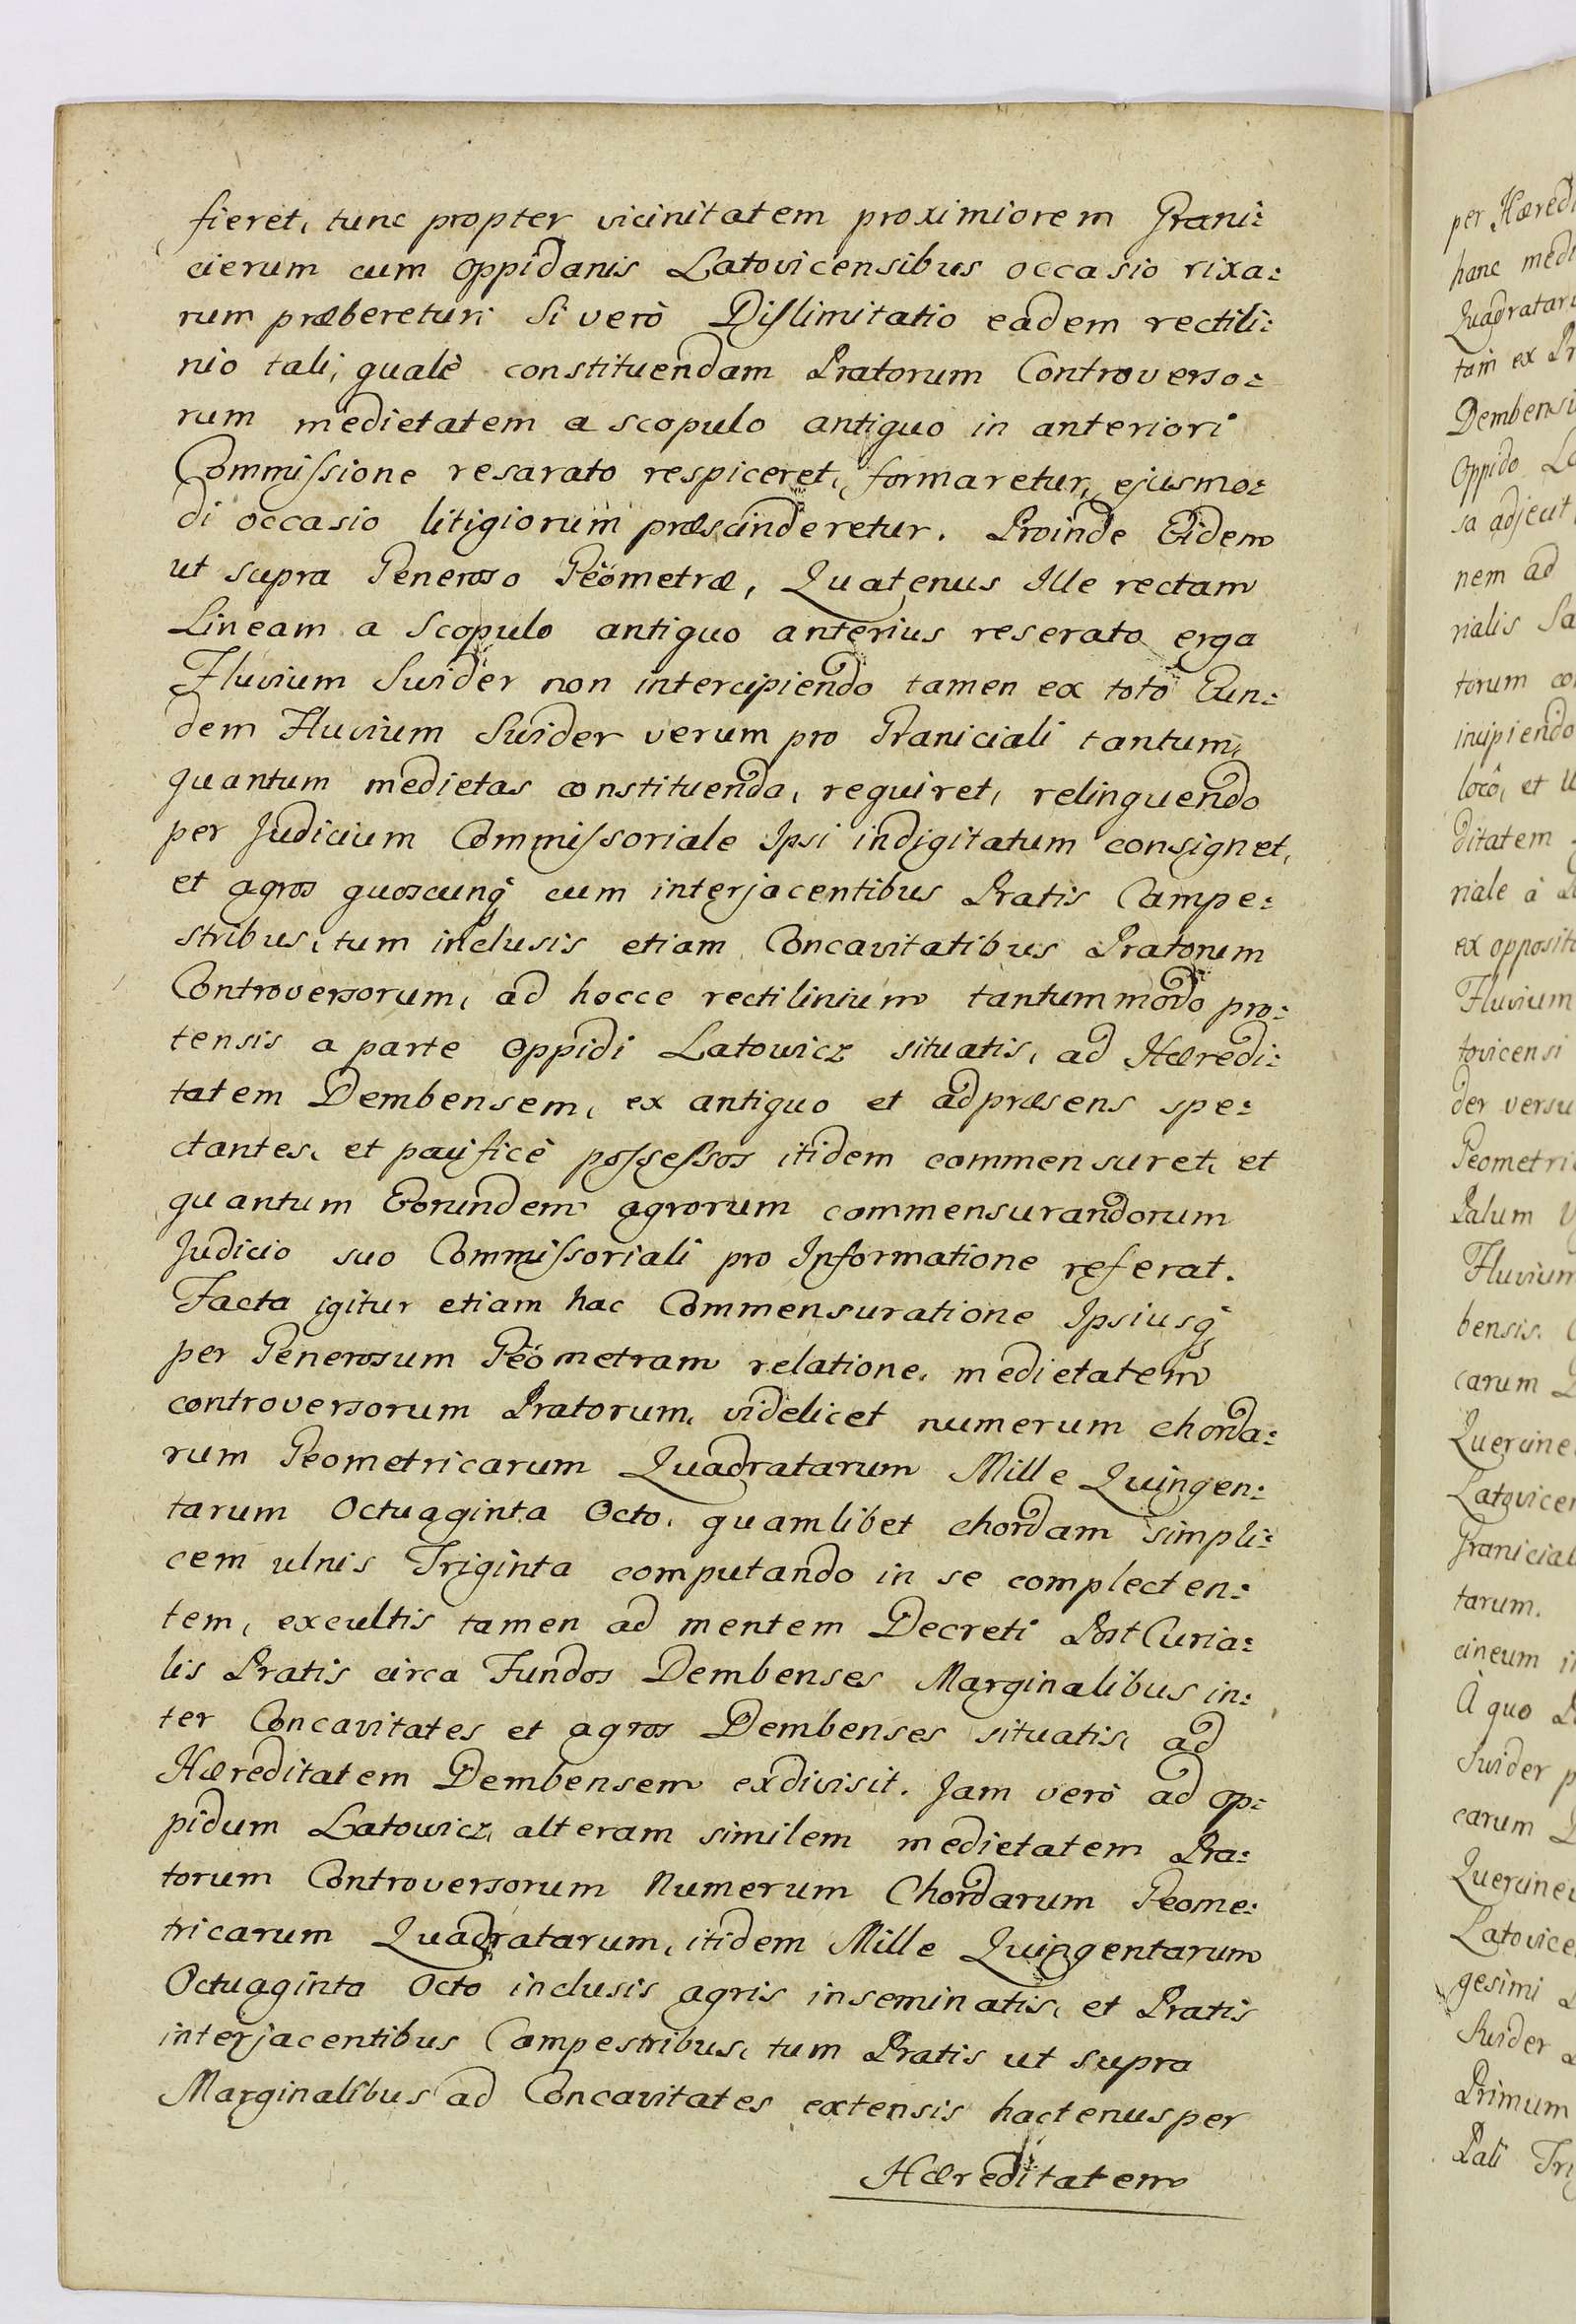 fieret, tunc propter vicinitatem proximiorem Grani:
cierum cum Oppidanis Latovicensibus occasio rixa:
rum præberetur; Si verò Dislimitatio eadem rectili:
nio tali, qualè constituendam Pratorum Controverso:
rum medietatem a scopulo antiquo in anteriori
Commissione resarato respiceret, formaretur, ejusmo:
di occasio litigiorum præscinderetur. Proinde Eidem
ut supra Generoso Geömetræ, Quatenus Ille rectam
Lineam a Scopulo antiquo anterius reserato erga
Fluvium Swider non intercipiendo tamen ex toto Eun:
dem Fluvium Swider verum pro Graniciali tantum,
quantum medietas constituenda, requiret, relinquendo
per Judicium Commissoriale Ipsi indigitatum consignet,
et agros quoscunq cum interjacentibus Pratis Campe:
stribus, tum inclusis etiam Concavitatibus Pratorum
Controversorum, ad hocce rectilinium tantummodo pro:
tensis a parte Oppidi Latowicz situatis, ad Hæredi:
tatem Dembensem, ex antiquo et adpræsens spe:
ctantes, et pacificè possessos itidem commensuret, et
quantum Eorundem agrorum commensurandorum
Judicio suo Commissoriali pro Informatione referat.
Facta igitur etiam hac Commensuratione Ipsiusq
per Generosum Geömetram relatione, medietatem
controversorum Pratorum, videlicet numerum chorda:
rum Geometricarum Quadratarum Mille Quingen:
tarum Octuaginta Octo, quamlibet chordam simpli:
cem ulnis Triginta computando in se complecten:
tem, excultis tamen ad mentem Decreti PostCuria:
lis Pratis circa Fundos Dembenses Marginalibus in:
ter Concavitates et agros Dembenses situatis, ad
Hæreditatem Dembensem exdivisit. Jam verò ad Op:
pidum Latowicz, alteram similem medietatem Pra:
torum Controversorum Numerum Chordarum Geome:
tricarum Quadratarum, itidem Mille Quingentarum
Octuaginta Octo inclusis agris inseminatis, et Pratis
interjacentibus Campestribus, tum Pratis ut supra
Marginalibus ad Concavitates extensis hactenus per
Hæreditatem
per Hæredi
hanc medi
Quadrataru
tam ex Pr
Dembensi
Oppido La
sa adjecit
nem ad
rialis Sa
torum co
incipiendo
locô, et
ditatem
riale à
ex opposito
Fluvium
tovicensi
der versu
Geometri
Palum
Fluvium
bensis.
carum
Quercine
Latovicen
Granicial
tarum.
cineum in
A quo
Swider p
carum
Quercine
Latovice
gesimi
Swider
Primum
Pali Tri